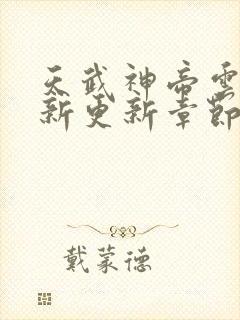 天武神帝雲
新更新章節
戴蒙德